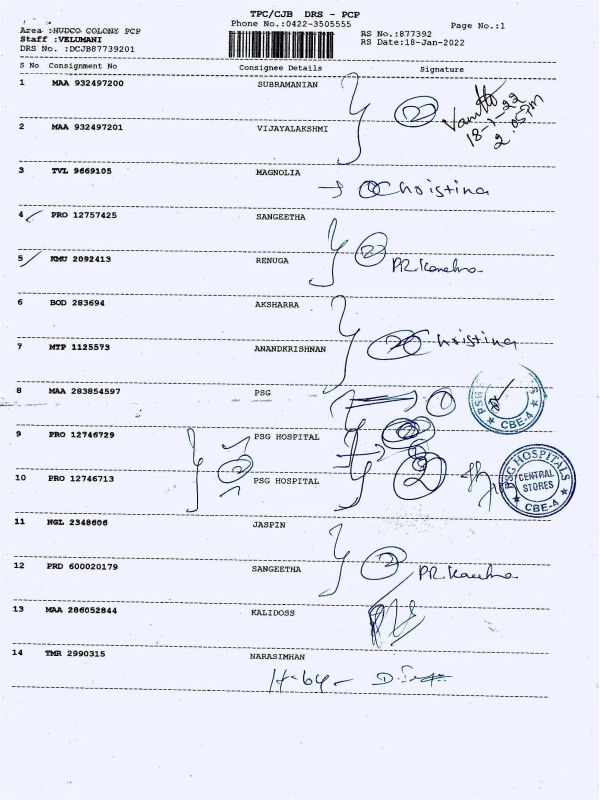 TPC/CJB DRS - PCP
Phone No.:0422-3505555
Page No.:1
Area :HUDCO COLONY PCP
Staff :VELUMANI
DRS No. :DCJB87739201
RS No.:877392
RS Date:18-Jan-2022
S No Consignment No Consignee Details Signature
1 MAA 932497200 SUBRAMANIAN
2
18-1-22
2.05PM
2 MAA 932497201 VIJAYALAKSHMI
3 TVL 9669105 MAGNOLIA
Christina
4 PRO 12757425 SANGEETHA
5 KMU 2092413 RENUGA
2
6 BOD 283694 AKSHARRA
7 MTP 1125573 ANANDKRISHNAN
Christina
8 MAA 283854597 PSG
1
PSG
CBE-4
9 PRO 12746729 PSG HOSPITAL
2
10 PRO 12746713 PSG HOSPITAL
2
PSG HOSPITALS
CENTRAL
STORES
CBE-4
11 NGL 2348606 JASPIN
12 PRD 600020179 SANGEETHA
2
13 MAA 286052844 KALIDOSS
14 TMR 2990315 NARASIMHAN